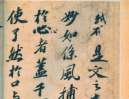 不是文
妙如係風捕
於心者蓋千
使了然於口